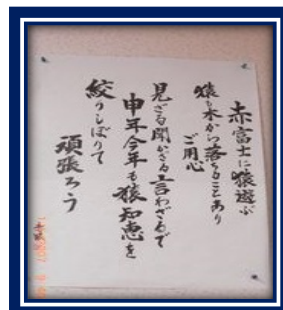 赤富士に猿遊ぶ
猿も木から落ちることあり
ご用心
見ざる聞かざる言わざるで
申年今年も猿知恵を
絞りしぼりて
頑張ろう